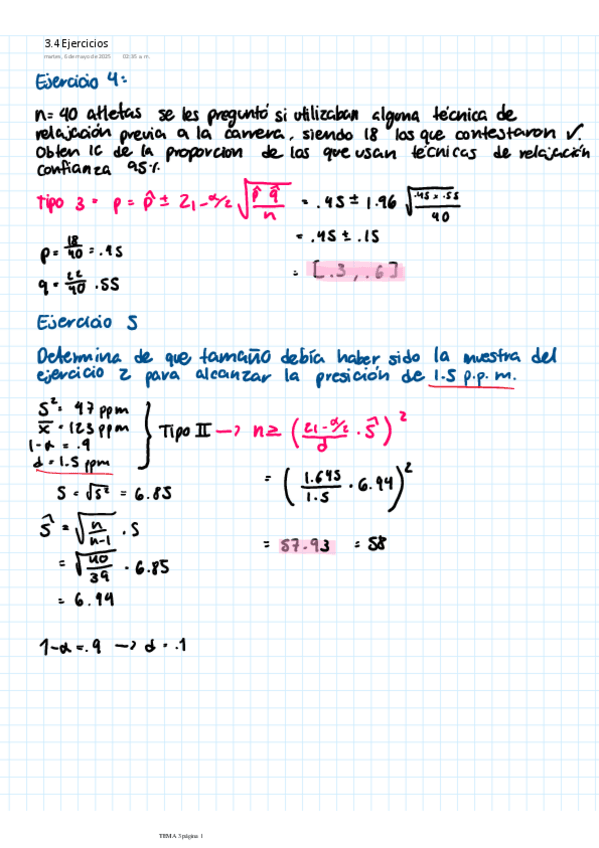 3.4 Ejercicios
martes, 6 de mayo de 2025 02:35 a. m.
Ejercicio 4:
n= 40 atletas se les preguntó si utilizaban alguna técnica de
relajación previa a la carrera, siendo 18 los que contestaron ✓.
Obten IC de la proporcion de los que usan técnicas de relajación
confianza 95%.
Tipo 3 = p = p̂ ± z₁₋α/₂ √(p̂ q̂ / n) = .45 ± 1.96 √(.45 x .55 / 40)
p = 18/40 = .45 = .45 ± .15
q = 22/40 .55 = [.3, .6]
Ejercicio 5
Determina de que tamaño debía haber sido la muestra del
ejercicio 2 para alcanzar la presición de 1.5 p.p.m.
S² = 47 ppm
x̄ = 123 ppm
1-α = .9
d = 1.5 ppm
Tipo II → n ≥ (z₁₋α/₂ / d · ŝ)²
S = √s² = 6.85 = (1.645 / 1.5 · 6.94)²
ŝ = √(n / n-1) · S
= √(40 / 39) · 6.85 = 57.93 = 58
= 6.94
1-α = .9 → α = .1
TEMA 3 página 1